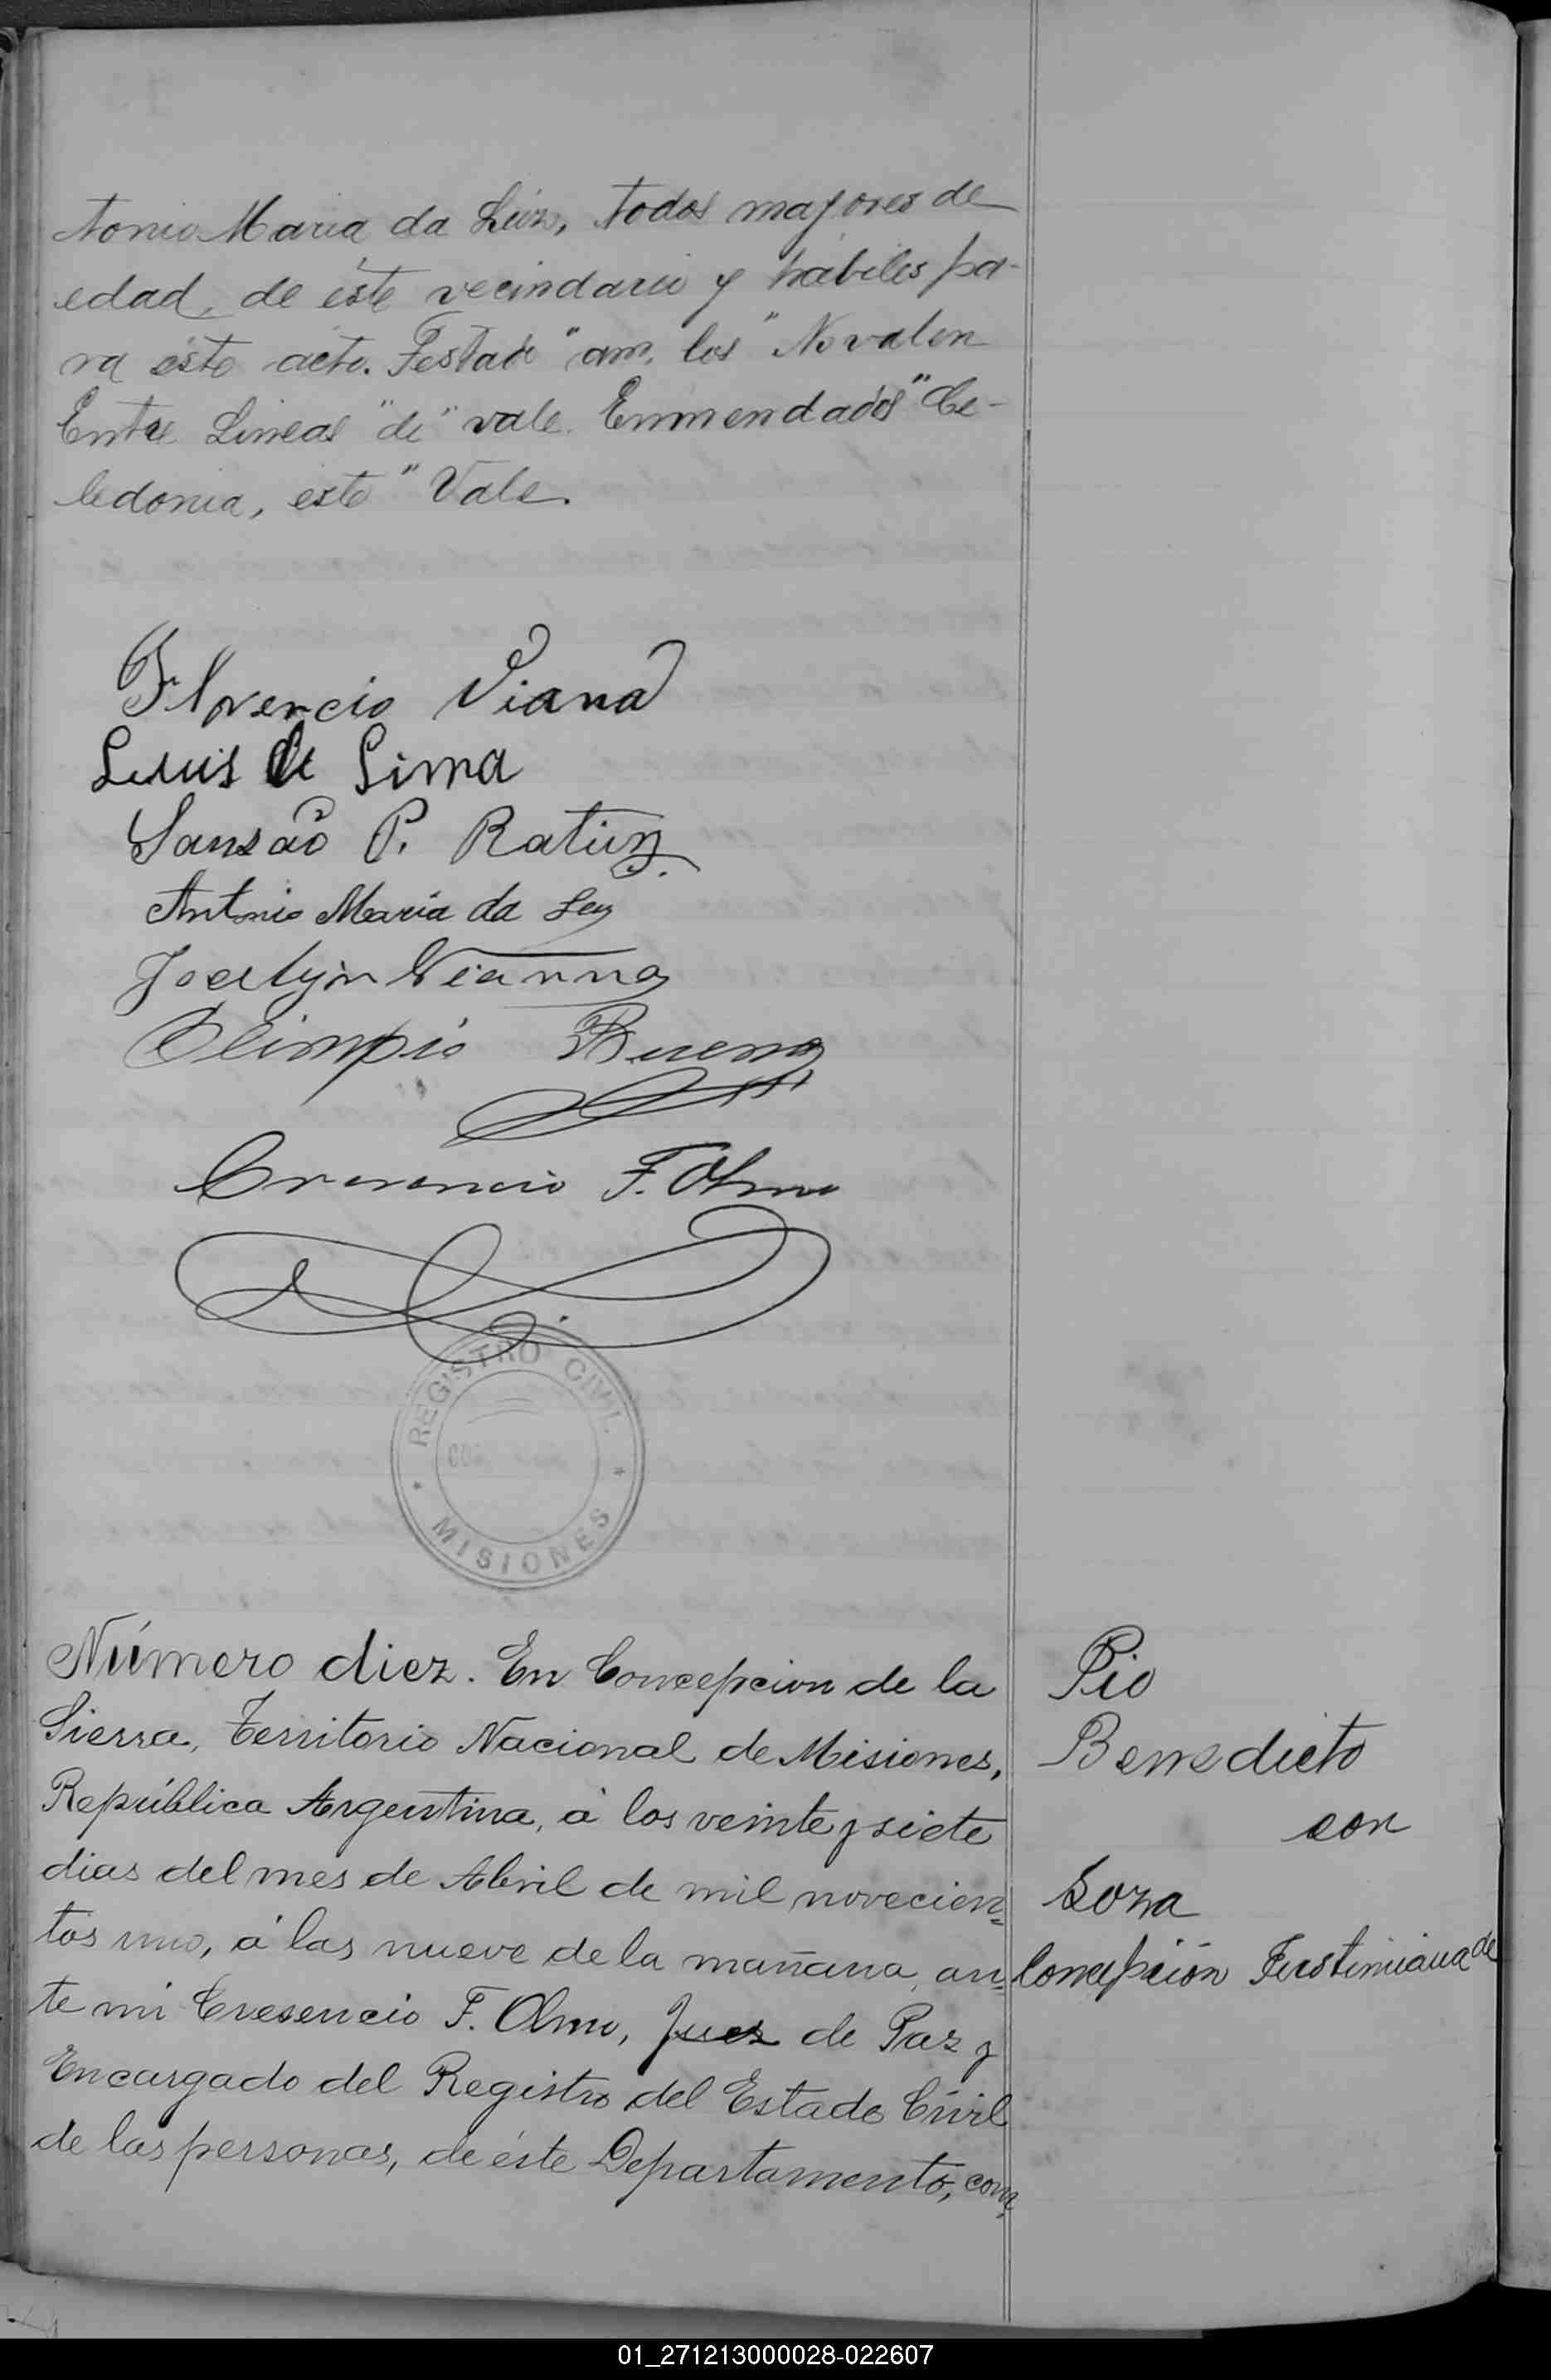 tonio Maria da Luz, todos mayores de
edad, de éste vecindario y hábiles pa-
ra éste acto. Testado "am, los" No valen
Entre Lineas "de" vale Enmendados "Ce-
ledonia, este" Vale.
Florencio Viana
Luis de Lima
Sansão P.
Antonio Maria da Luz
Joctyn Vianna
Olimpio Bueno
Cresencio F. Olmo
REGISTRO CIVIL
MISIONES
Número diez. En Concepcion de la
Sierra, Territorio Nacional de Misiones,
República Argentina, á los veinte y siete
dias del mes de Abril de mil novecien=
tos uno, á las nueve de la mañana, an=
te mi Cresencio F. Olmo, Juez de Paz y
Encargado del Registro del Estado Civil
de las personas, de éste Departamento, com
Pio
Benedicto
con
Soza
Concepción de
01_271213000028-022607